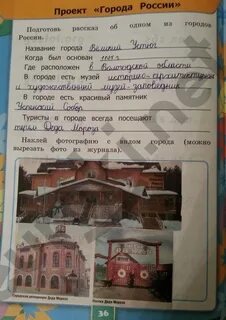 Проект «Города России»
Подготовь рассказ об одном из городов
России.
Название города Великий Устюг
Когда был основан
Где расположен в Вологодской области
В городе есть музей историко-архитектурный
и художественный музей-заповедник
В городе есть красивый памятник
Успенский Собор
Туристы в городе всегда посещают
терем Деда Мороза
Наклей фотографию с видом города (можно
вырезать фото из журнала).
Городская резиденция Деда Мороза
36